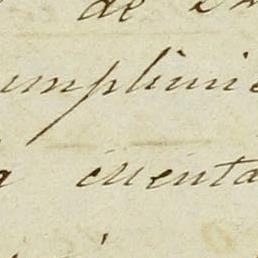 de
umplimie
a cuenta